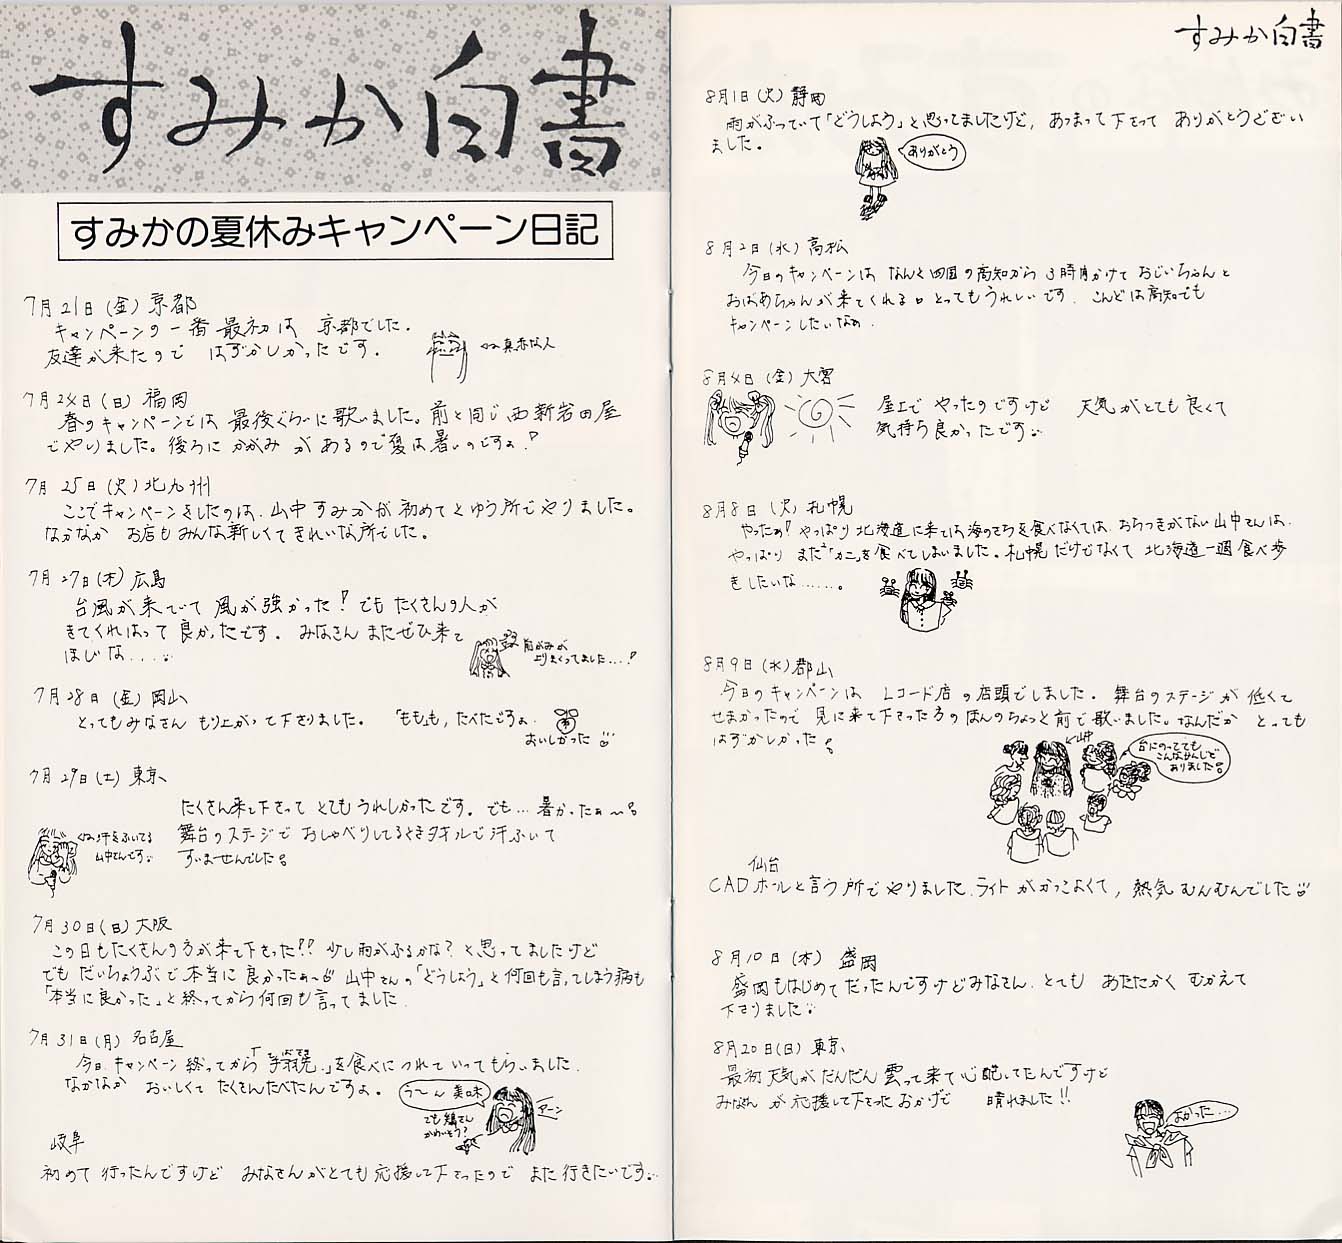 すみか白書
すみかの夏休みキャンペーン日記
7月21日(金)京都
キャンペーンの一番最初は 京都でした.
友達が来たので はずかしかったです.
真赤な人
7月24日(日)福岡
春のキャンペーンでは 最後ぐらいに歌いました。前と同じ西新岩田屋
でやりました。後ろに かがみ が あるので夏は暑いのですョ!
7月 25日(火)北九州
ここでキャンペーンをしたのは. 山中すみかが初めてとゆう所でやりました。
なかなか お店もみんな新しくてきれいな所でした。
7月 27日(木)広島
台風が来てて 風が強かった! でもたくさんの人が
きてくれはって 良かったです. みなさん またぜひ来て
ほしいな....
前がみが
よりまくってました...!
7月28日(金)岡山
とってもみなさん もり上がって下さりました。「もも」も,たべたですョ.
おいしかった
7月29日(土)東京
たくさん来て下さって とてもうれしかったです. でも... 暑かったぁ〜
舞台のステージで おしゃべりしてるときタオルで汗ふいて
すいませんでした
汗をふいてる
山中さんです
7月30日(日)大阪
この日もたくさんの方が来て下さった!! 少し雨がふるかな? と思ってましたけど
でも だいじょうぶで本当に 良かったぁ〜 山中さんの「どうしよう」と何回も言ってしまう病も
「本当に良かった」と終ってから何回も言ってました.
7月31日(月)名古屋
今日. キャンペーン終ってから「手羽先」を食べに つれて いってもらいました.
なかなか おいしくて たくさんたべたんですよ.
う〜ん 美味
でも鶏さん
かわいそう?
アーン
岐阜
初めて 行ったんですけど みなさんがとても応援して下さったので また行きたいです.
すみか白書
8月1日(火)静岡
雨がふっていて「どうしよう」と思ってましたけど, あつまって下さって ありがとうござい
ました。
ありがとう
8月2日(水)高松
今日のキャンペーンは なんと四国の高知から 3時間かけて おじいちゃんと
おばあちゃんが来てくれる日 とってもうれしいです. こんどは高知でも
キャンペーンしたいなぁ.
8月4日(金)大宮
屋上で やったのですけど 天気がとても良くて
気持ち良かったです
8月8日(火)札幌
やったぁ! やっぱり北海道に来ては海のさちを食べなくては. おちつきがない山中さんは.
やっぱり また「カニ」を食べてしまいました。札幌だけでなくて 北海道一週食べ歩
きしたいな......。
8月9日(水)郡山
今日のキャンペーンは レコード店の店頭でしました. 舞台のステージが 低くて
せまかったので 見に来て下さった方のほんのちょっと前で歌いました。なんだか とっても
はずかしかった
山中
台にのってても
こんなかんじで
ありました
仙台
CADホールと言う所でやりました. ライト がかっこよくて, 熱気 むんむんでした
8月10日(木)盛岡
盛岡もはじめてだったんですけどみなさん. とても あたたかく むかえて
下さりました
8月20日(日)東京
最初天気がだんだん 雲って来て心配してたんですけど
みなさん が応援して下さったおかげで 晴れました!!
よかった...